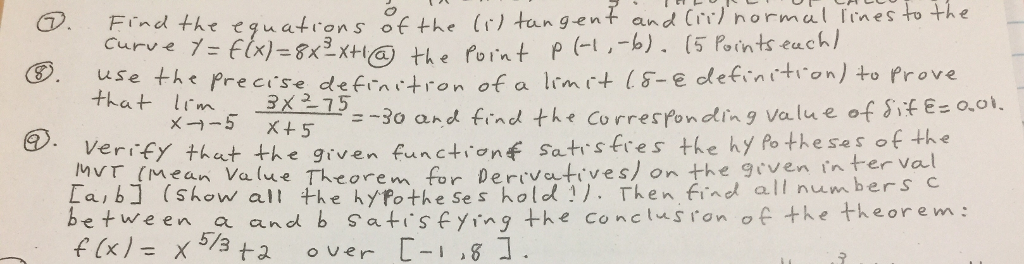 ⑦. Find the equations of the (i) tangent and (ii) normal lines to the
curve Y = f(x) = 8x³-x+1 @ the point P (-1,-6). (5 Points each)
⑧. use the precise definition of a limit (δ-ε definition) to prove
that lim x→-5 3x²-75 / x+5 = -30 and find the corresponding value of δ if ε = 0.01.
⑨. Verify that the given function f satisfies the hypotheses of the
MVT (Mean Value Theorem for Derivatives) on the given interval
[a,b] (show all the hypotheses hold!). Then find all numbers c
between a and b satisfying the conclusion of the theorem:
f(x) = x^5/3 + 2 over [-1,8].